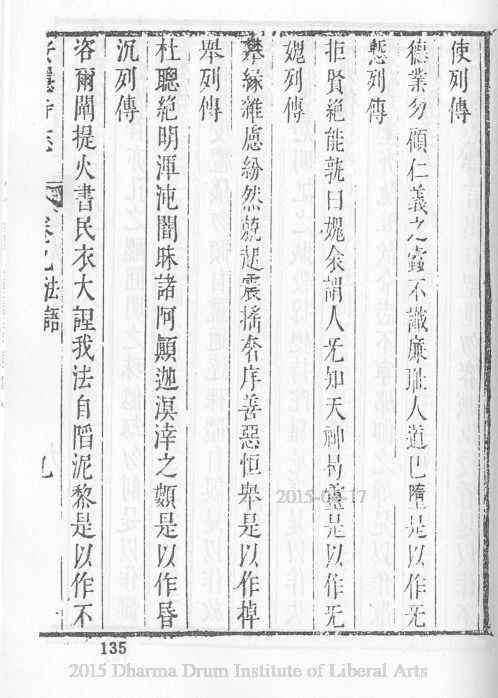 使列傳
德業勿顧仁義之蠧不識廉耻人道已墮是以作无
慙列傳
拒賢絶能孰曰媿余謂人无知天神有靈是以作无
媿列傳
攀緣雜慮紛然就起震搖奢序善惡恒舉是以作掉
舉列傳
杜聰絶明渾沌闇昧諸阿顚迦溟涬之顙是以作昏
沉列傳
咨爾闡提火書民衣大誑我法自陷泥黎是以作不
卷九 法語 九
135
2015-04-17
2015 Dharma Drum Institute of Liberal Arts